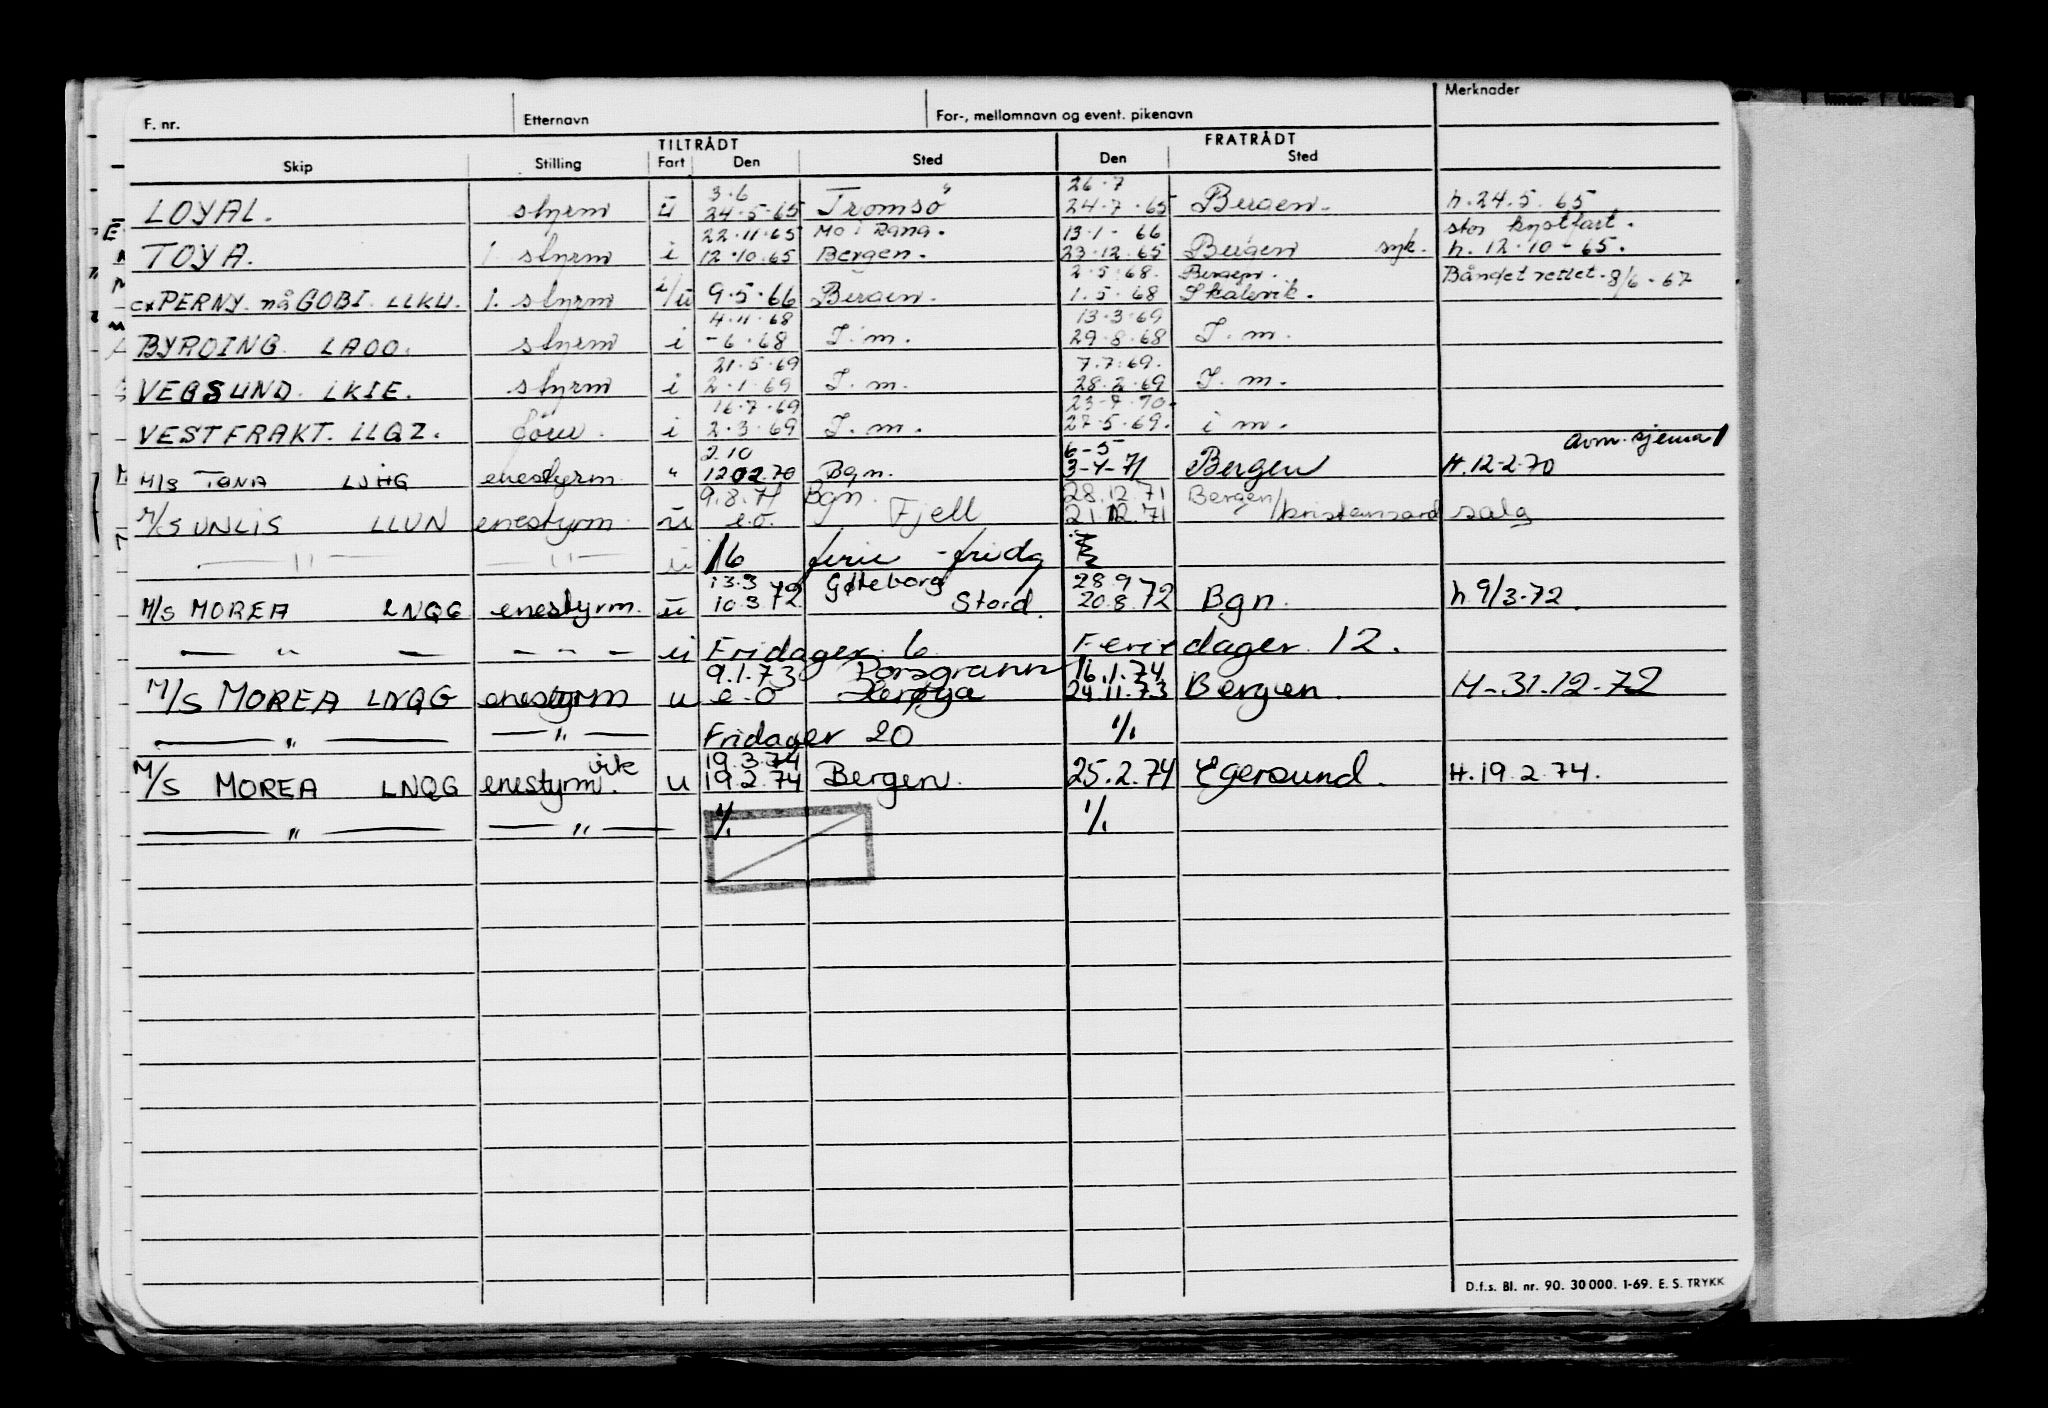 F. nr. Etternavn For-, mellomnavn og event. pikenavn Merknader
TILTRÅDT FRATRÅDT
Skip Stilling Fart Den Sted Den Sted
3.6 26.7
LOYAL. styrm ū 24.5.65 Tromsø 24.7.65 Bergen. h.24.5.65
22.11.65 Mo i Rana. 13.1-66 stor kystfart.
TOYA. 1. styrm i 12.10.65 Bergen. 23.12.65 Bergen syk. h.12.10-65.
2.5.68. Bergen. Båndet rettet.8/6-67
ex PERNY. nå GOBI. LLKU. 1. styrm i/ū 9.5.66 Bergen. 1.5.68 Skålevik.
4.11.68 13.3.69
BYRDING. LADO. styrm i -6.68 I.m. 29.8.68 I.m.
21.5.69 7.7.69.
VEGSUND. LKIE. styrm i 2.1.69 I.m. 28.2.69 I.m.
16.7.69 23-9.70.
VESTFRAKT. LLQZ. i 2.3.69 I.m. 27.5.69. i m.
2.10 6-5 avm.sjema
M/S TONA LJHG enestyrm " 1202.70 Bgn. 3-4-71 Bergen H.12-2.70
9.8.71 Bgn. 28.12.71 Bergen/
M/S UNLIS LLUN enestyrm ū e.o. Fjell 21.12.71 kristiansand salg
— " — — " — ū 16 ferie - fridg
13.3 Gøteborg 28.9
M/S MOREA LNQG enestyrm. ū 10.3 72 Stord. 20.8.72 Bgn. h 9/3-72.
— " — — " — ū Fridager 6 Feriedager 12.
9.1.73 Porsgrunn 16.1.74
M/S MOREA LNQG enestyrm u e-o Herøya 24.11.73 Bergen. H-31.12.72
— " — — " — Fridager 20 1/1
vik 19.3.74
M/S MOREA LNQG enestyrm. u 19.2.74 Bergen. 25.2.74 Egersund. H.19.2.74.
— " — — " — 1/1 1/1
D.f.s. Bl. nr. 90. 30 000. 1-69. E. S. TRYKK